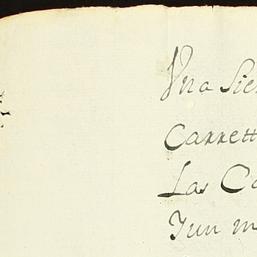 Una Sie
Carrett
Las Ca
Jun m